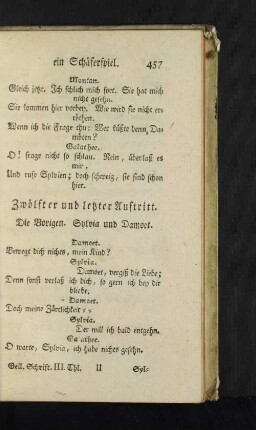 ein Schäferspiel. 457
Montan.
Gleich jetzt. Ich schlich mich fort. Sie hat mich
nicht gesehn.
Sie kommen hier vorbey. Wie wird sie nicht er-
röthen.
Wenn ich die Frage thu: Wer küßte denn, Da-
möten?
Galathee.
O! frage nicht so schlau. Nein, überlaß es
mir,
Und rufe Sylvien; doch schweig, sie sind schon
hier.
Zwölfter und letzter Auftritt.
Die Vorigen. Sylvia und Damoet.
Damoet.
Bewegt dich nichts, mein Kind?
Sylvia.
Damoet, vergiß die Liebe;
Denn sonst verlaß ich dich, so gern ich bey dir
bliebe.
Damoet.
Doch meine Zärtlichkeit ⸗ ⸗
Sylvia.
Der will ich bald entgehn.
Galathee.
O warte, Sylvia, ich habe nichts gesehn.
Gell. Schrift. III. Thl. U Syl-